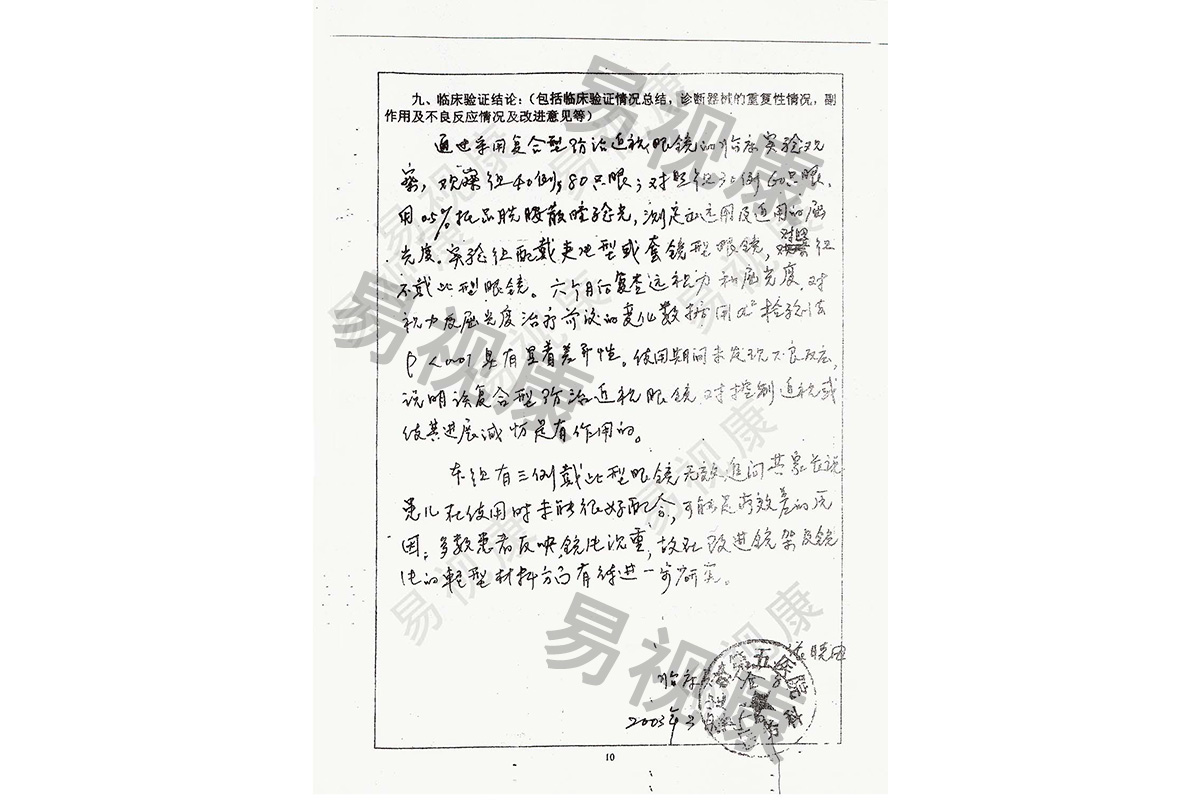 九、临床验证结论：（包括临床验证情况总结，诊断器械的重复性情况，副
作用及不良反应情况及改进意见等）
通过采用复合型防治近视眼镜的临床实验观
察，观察组40例，80只眼；对照组 例60只眼，
用0.5%托品酰胺散瞳验光，测定 及适用的屈
光度。实验组配戴夹片型或套镜型眼镜，对照组
不戴此型眼镜。六个月后复查远视力和屈光度，对
视力及屈光度治疗前后的变化数据用X²检验法
P<0.01具有显著差异性。使用期间未发现不良反应，
说明该复合型防治近视眼镜，对控制近视或
使其进展减 是有作用的。
本组有三例戴此型眼镜无效，追问其家长说
患儿在使用时未能很好配合，可能是疗效差的原
因；多数患者反映，镜片沉重，故在改进镜架及镜
片的轻型材料方面有待进一步研究。
临床
2003年
10
易视康
易视康
易视康
易视康
易视康
易视康